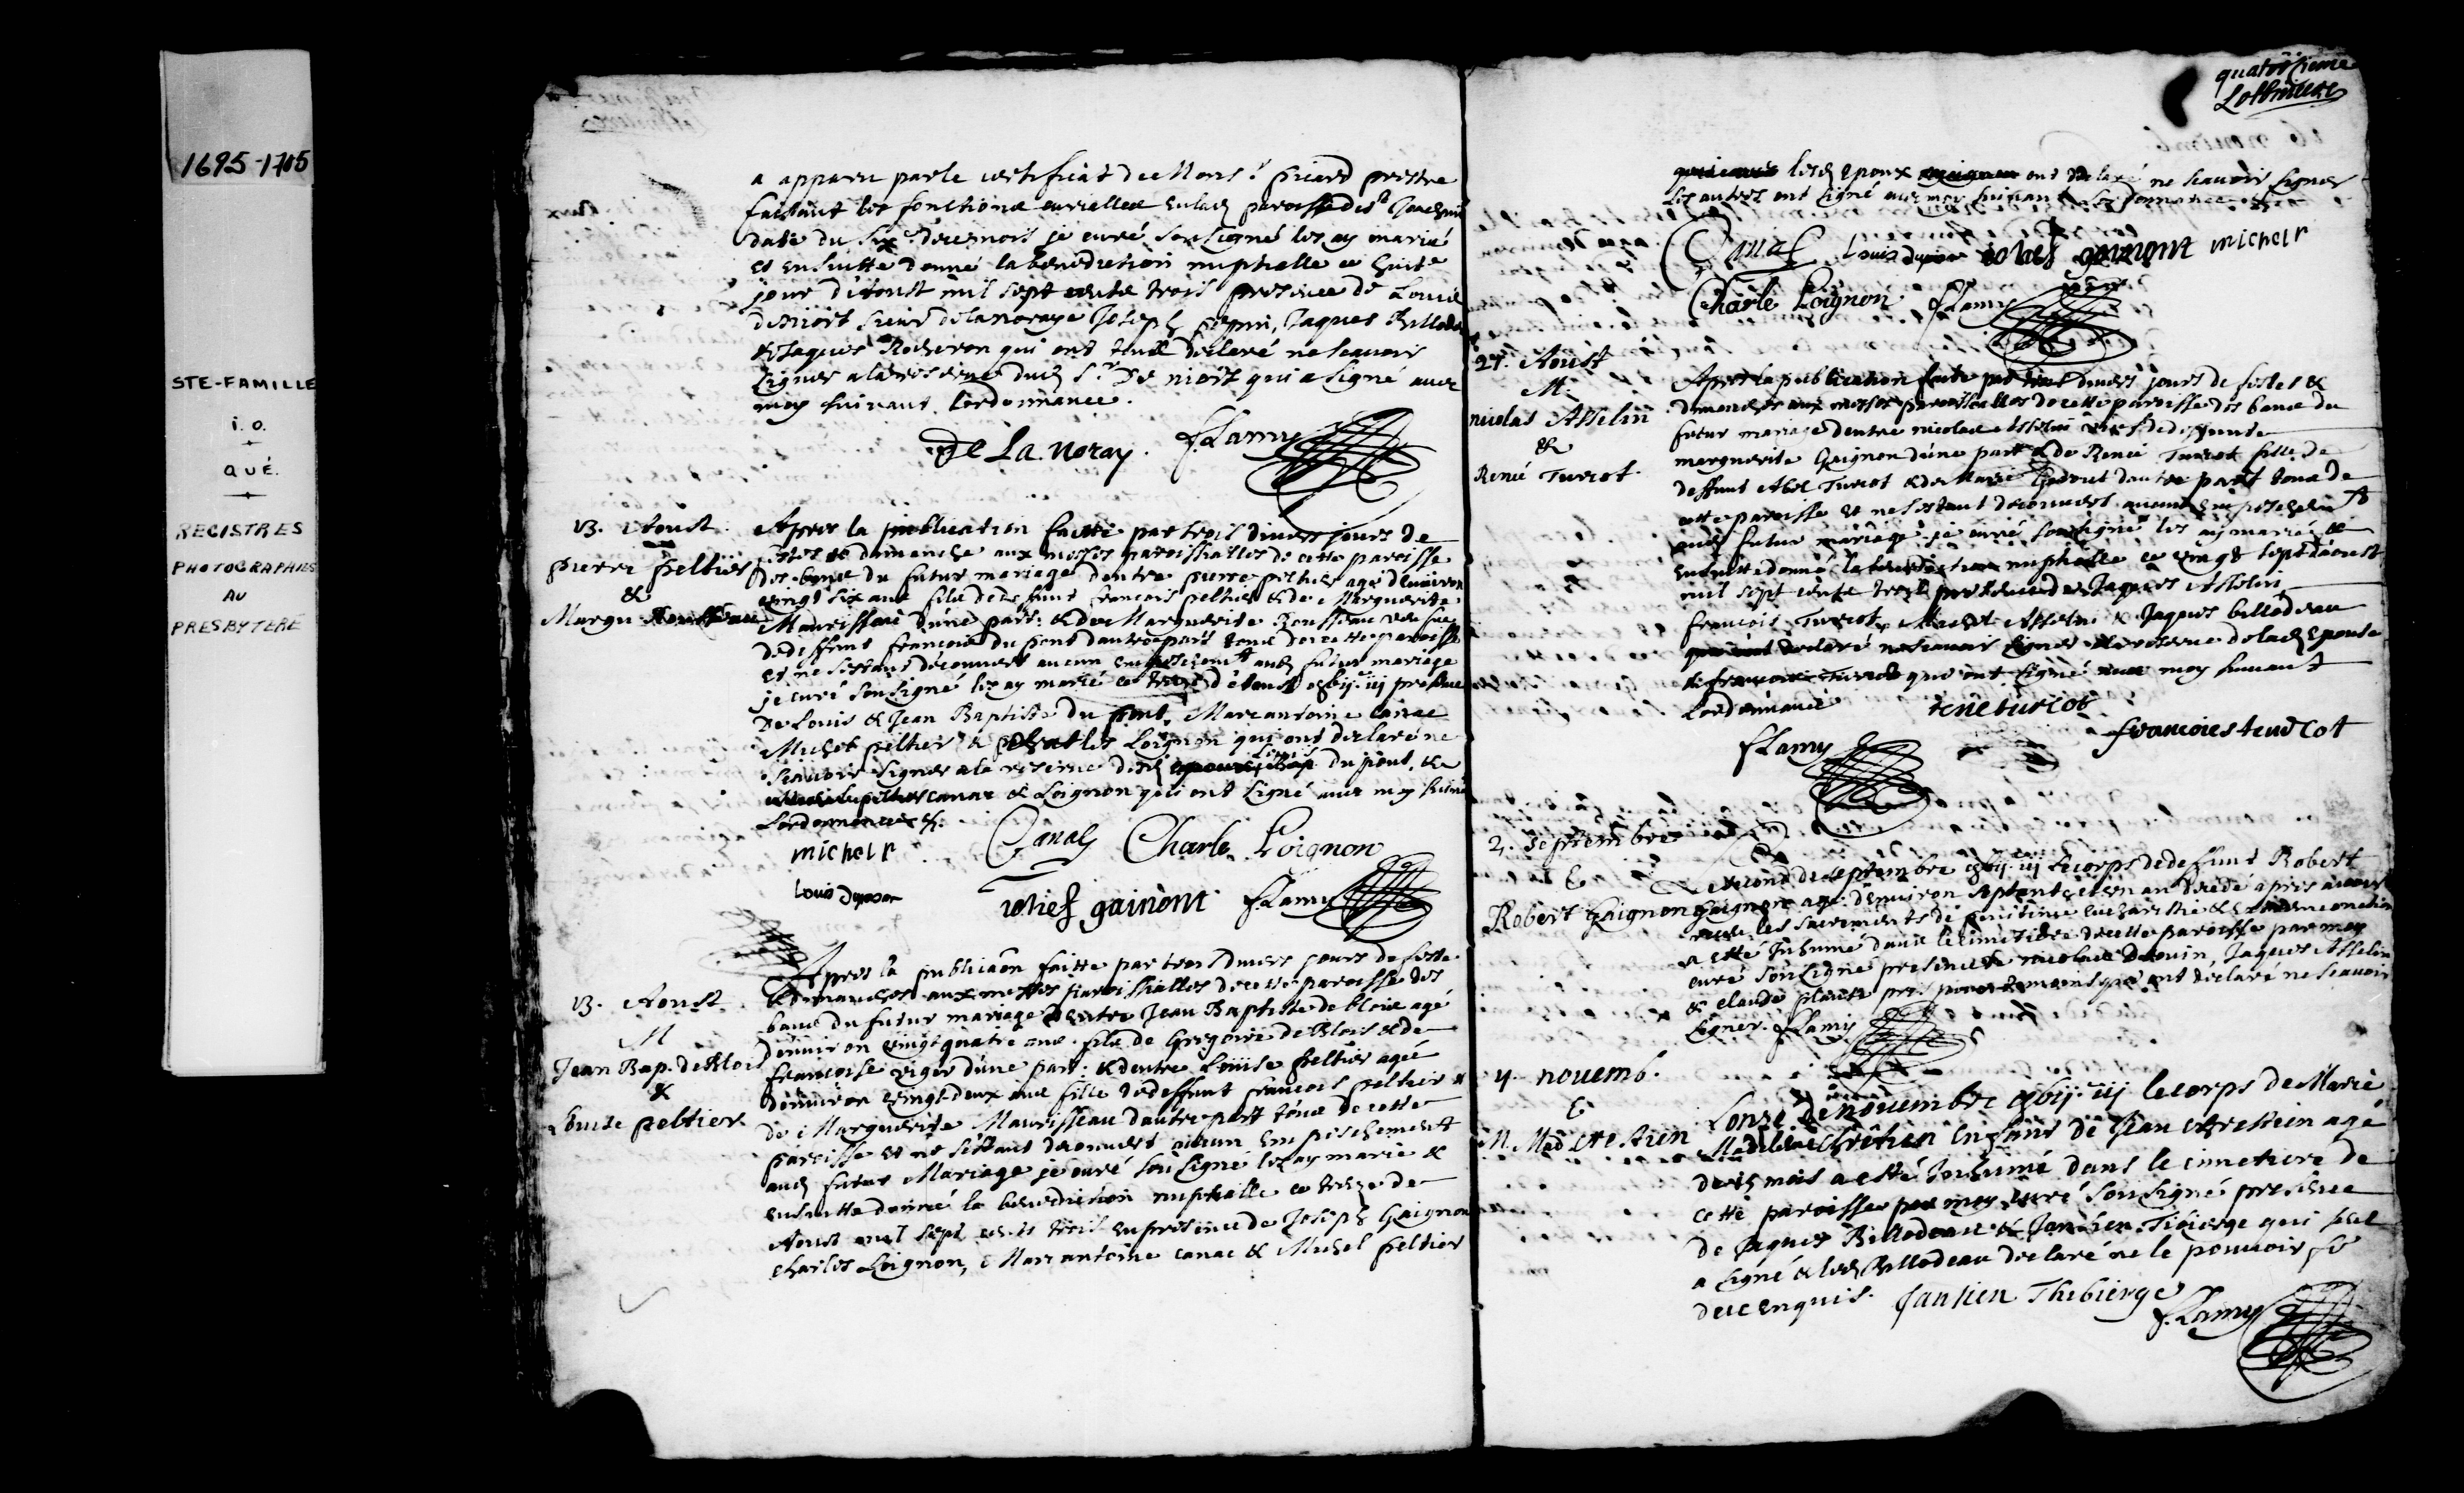 1695-1705
STE-FAMILLE
i. o.
QUÉ.
REGISTRES
PHOTOGRAPHIÉS
AU
PRESBYTÈRE
a apparu par le certificat de Mons.r prestre
faisant les fonctions curialles
daté du six.e de ce mois je curé soussigné les ay marié
et ensuitte donné la benediction nuptialle ce huit.e
jour d'aoust mil sept cents trois presence de Louis
de Niort sieur de la noraye Joseph Jaques Billodeau
& Jaques Rocheron qui ont tous declaré ne scavoir
signer a la reserve dud S.r De niort qui a signé avec
moy suivant l'ordonnance.
De La Noray. f Lamy
13. Aoust
Pierre Peltier
&
Margu Rousseau
Apres la publication faitte par trois divers jours de
festes & dimanche aux messes paroissialles de cette paroisse
des bancs du futur mariage d'entre pierre peltier agé d'environ
vingt six ans fils de deffunt francois peltier & de Marguerite
Maurisseau d'une part: & de Marguerite Rousseau
de deffunt francois du pont d'autre part tous de cette paroisse
et ne s'estant decouvert aucun empeschem.t aud futur mariage
je curé soussigné les ay marié ce treize d'Aoust presence
De Louis & Jean Baptiste du pont, Marcantoine Canac
Michel peltier & Charles Loignon qui ont declaré ne
scavoir signer a la reserve desd Louis du pont, &
Canac & Loignon qui ont signé avec moy
L'ordonnance
michel p
Canac Charle Loignon
Louis Dupon
f Lamy
13. Aoust
M
Jean Bap. de Blois
&
Louise Peltier
Apres la publicaôn faitte par trois divers jours de feste
& dimanches aux messes paroissialles de cette paroisse des
bancs du futur mariage d'entre Jean Baptiste de blois agé
d'environ vingt quatre ans fils de Gregoire de Blois & de
francoise viger d'une part: & d'entre Louise peltier agée
d'environ vingt deux ans fille de deffunt francois peltier &
de Marguerite Maurisseau d'autre part tous de cette
paroisse et ne s'estant decouvert aucun empeschement
aud futur Mariage je curé soussigné les ay marié &
ensuitte donné la benediction nuptialle ce treize de
Aoust mil sept cents trois en presence de Joseph Gaignon
Charles Loignon, Marcantoine canac & Michel peltier
quatorzieme
Lotbiniere
lesd epoux ont declaré ne scavoir signer
les autres ont signé avec moy suivant l'ordonnance
Canac Louis Dupon michel p
Charle Loignon f Lamy
27. Aoust
M.
nicolas Asselin
&
Renée Turcot
Apres la publication faite par trois divers jours de festes &
dimanches aux messes paroissialles de cette paroisse des bancs du
futur mariage d'entre nicolas Asselin de deffunte
marguerite Gaignon d'une part & de Renée Turcot fille de
deffunt Abel Turcot & de Marie d'autre part tous de
cette paroisse et ne s'estant decouvert aucun empeschem.t
aud futur mariage je curé soussigné les ay marié &
ensuitte donné la benediction nuptialle ce vingt sept d'aoust
mil sept cents trois presence de Jaques Asselin
francois Turcot, Asselin & Jaques billodeau
declaré ne scavoir signer a la reserve de lad epouse
& francois Turcot qui ont signé avec moy suivant
L'ordonnance
rene turcot
f Lamy
francois turcot
2. Septembre
E
Robert Gaignon
Le second de septembre le corps de deffunt Robert
Gaignon agé d'environ septante et un an decedé apres avoir
receu les sacrements de penitence eucharistie & extreme onction
a esté inhumé dans le cimetiere de cette paroisse par moy
curé soussigné presence de nicolas Drouin, Jaques Asselin
& claude plante qui ont declaré ne scavoir
signer. f Lamy
4. novemb.
E
M. Mad Chrestien
L'onze de novembre le corps de Marie
Madelene Chrêtien enfant de Jean Chrestien agé
de mois a esté inhumé dans le cimetiere de
cette paroisse par moy curé soussigné presence
de Jaques Billodeau & Jansien Tibierge qui seul
a signé & led Billodeau declaré ne le pouvoir
de ce enquis. Jansien Thibierge
f Lamy